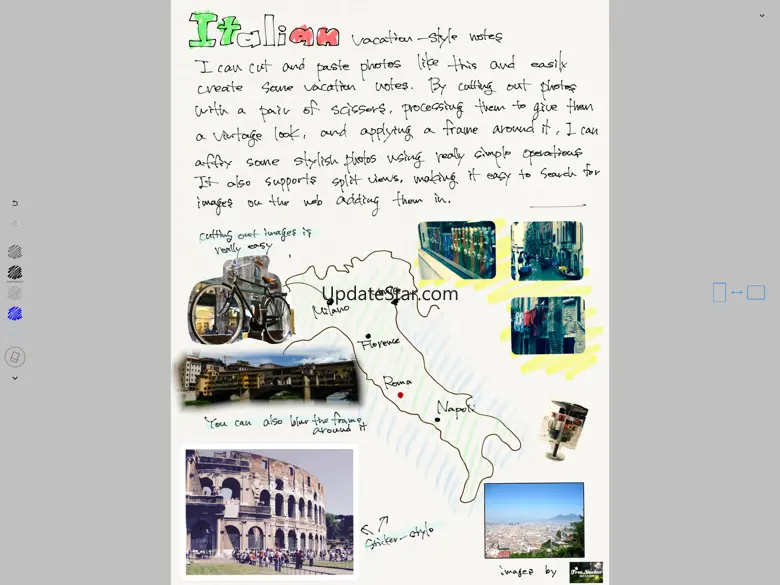 Italian vacation-style notes
I can cut and paste photos like this and easily
create some vacation notes. By cutting out photos
with a pair of scissors, processing them to give them
a vintage look, and applying a frame around it, I can
affix some stylish photos using really simple operations
It also supports split views, making it easy to search for
images on the web adding them in.
cutting out images is
really easy
UpdateStar.com
Milano
Florence
Roma
Napoli
You can also blur the frame
around it
sticker-style
images by